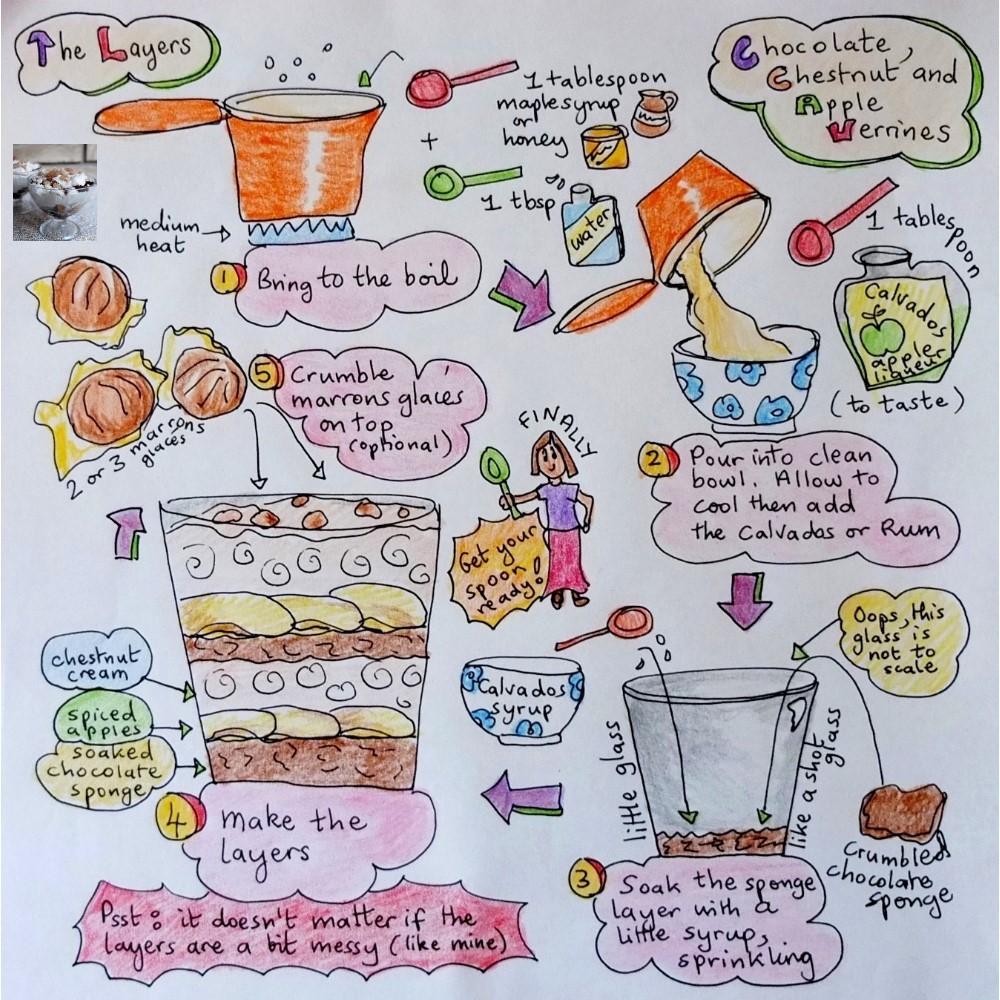 The Layers
Chocolate,
Chestnut and
Apple
Verrines
1 tablespoon
maple syrup
or
honey
+
1 tbsp
water
medium
heat
1 Bring to the boil
1 tablespoon
Calvados
apple
liqueur
(to taste)
2 Pour into clean
bowl. Allow to
cool then add
the Calvados or Rum
Oops, this
glass is
not to
scale
little glass
like a shot
glass
Crumbled
chocolate
sponge
3 Soak the sponge
layer with a
little syrup,
sprinkling
Calvados
syrup
4 Make the
layers
chestnut
cream
spiced
apples
soaked
chocolate
sponge
Psst: it doesn't matter if the
layers are a bit messy (like mine)
5 Crumble
marrons glacés
on top
(optional)
2 or 3 marrons
glacés
FINALLY
Get your
spoon
ready!